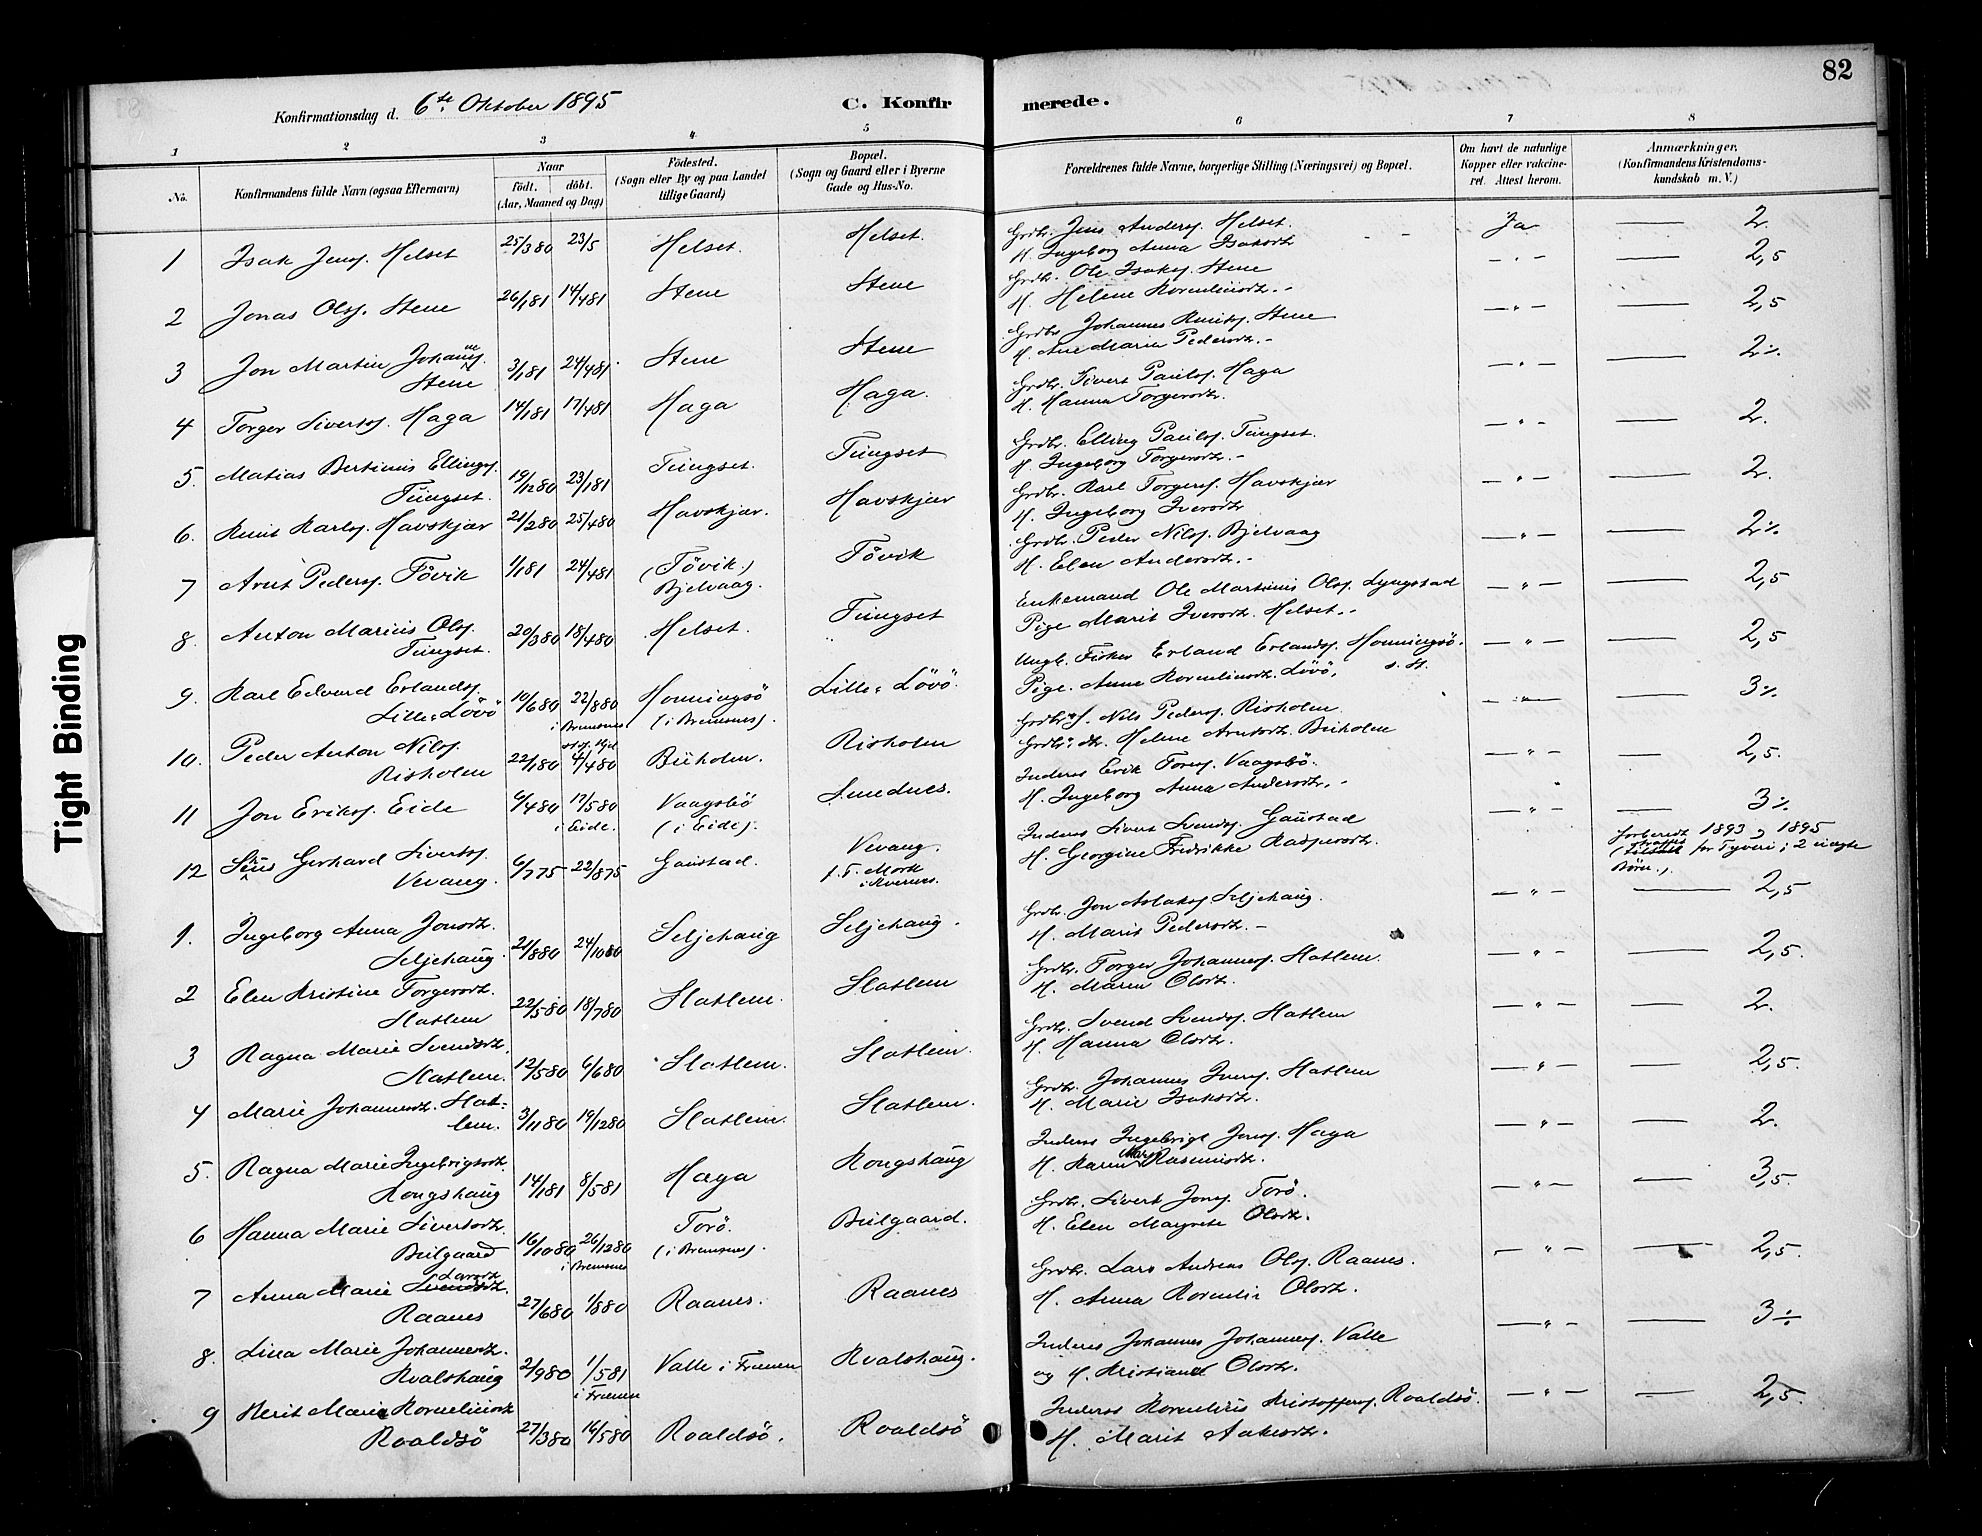 82
Konfirmationsdag d. 6te Oktober 1895
C. Konfirmerede.
1 2 3 4 5 6 7 8
No.
Konfirmandens fulde Navn (ogsaa Efternavn)
Naar
födt. döbt.
(Aar, Maaned og Dag)
Födested.
(Sogn eller By og paa Landet
tillige Gaard)
Bopæl.
(Sogn og Gaard eller i Byerne
Gade og Hus-No.
Forældrenes fulde Navne, borgerlige Stilling (Næringsvei) og Bopæl.
Om havt de naturlige
Kopper eller vakcine-
ret. Attest herom.
Anmærkninger.
(Konfirmandens Kristendoms-
kundskab m. V.)
1 Isak Jensf. Helset 25/3 80 23/5 Helset. Helset. Grdbr. Jens Andersf. Helset. Ja — 2.
H. Ingeborg Anna Isaksdtr
2 Jonas Olsf. Stene 26/1 81 14/4 81 Stene Stene Grdbr. Ole Isaksf. Stene — " — — 2,5
H. Helene Korneliusdtr. -
3 Jon Martin Johannesf. Stene 3/1 81 24/4 81 Stene Stene Grdbr. Johannes Knutsf. Stene — " — — 2,5
H. Ane Marie Pedersdtr. -
4 Torger Sivertsf. Haga 14/1 81 17/4 81 Haga Haga. Grdbr. Sivert Paulsf. Haga — " — — 2%
H. Hanna Torgersdtr.
5. Matias Bertinius Ellingsf. Tungset. 19/12 80 23/1 81 Tungset. Tungset Grdbr. Elling Paulsf. Tungset. — " — — 2.
H. Ingeborg Torgersdtr. -
6. Knut Karlsf. Havskjær 21/2 80 25/4 80 Havskjær. Havskjær Grdbr. Karl Torgersf. Havskjær — " — — 2.
H. Ingeborg Iversdtr
7 Arnt Pedersf. Tövik 1/1 81 24/4 81 (Tövik.) Bjelvaag. Tövik Grdbr. Peder Nilsf. Bjelvaag — " — — 2%
H. Elen Andersdtr. -
8. Anton Marius Olsf. Tungset. 20/3 80 18/4 80 Helset. Tungset Enkemand Ole Martinus Olsf. Lyngstad — " — — 2,5
Pige Marit Iversdtr. Helset. -
9. Karl Edvard Erlandsf. Lille Lövö 10/6 80 22/8 80 i Bremsnes Honningsö (i Bremsnes). Lille Lövö. Ungk. Fisker Erland Erlandsf. Honningsö. — " — — 2,5
Pige. Anne Korneliusdtr. Lövö, s. St.
10. Peder Anton Nilsf. Risholen 22/1 80 4/4 80 Buholen. Risholen Grdbrs. Nils Pedersf. Risholen — " — — 3%
Grdbr. dtr. Helene Arntsdtr. Buholen
11 Jon Eriksf. Eide 6/4 80 17/5 80 i Eide. Vaagsbö (i Eide). Smednes. Inderst Erik Toresf. Vaagsbö. — " — — 2,5.
H. Ingeborg Anna Andersdtr. -
12 Gerhard Sivertsf. Vevang. 6/7 75 22/8 75 Gaustad. Vevang. f. T. Mork i Kvernes. Inderst Sivert Svendsf. Gaustad — " — — 3%
H. Georgine Fredrikke Kaspersdtr.
forberedt 1893 og 1895
(straffet for Tyveri; 2 uægte
Börn.).
1. Ingeborg Anna Jonsdtr. Seljehaug. 21/8 80 24/10 80 Seljehaug Seljehaug. Grdbr. Jon Aslaksf. Seljehaug. — " — — 2,5
H. Marit Pedersdtr. -
2 Elen Kristine Torgersdtr. Slatlem 22/5 80 18/7 80 Slatlem. Slatlem Grdbr. Torger Johannesf. Slatlem. — " — — 2,5.
H. Maren Olsdtr.
3 Ragna Marie Svendsdtr. Slatlem. 12/5 80 6/6 80 Slatlem. Slatlem. Grdbr. Svend Svendsf. Slatlem — " — — 2.
H. Hanna Olsdtr.
4 Marie Johannesdtr. Slatlem. 3/11 80 19/12 80 Slatlem. Slatlem. Grdbr. Johannes Iversf. Slatlem — " — — 2,5.
H. Marie Isaksdtr.
5. Ragna Marie Ingebrigtsdtr. Kongshaug 14/1 81 8/5 81 Haga Kongshaug Inderst Ingebrigt Jonsf. Haga — " — — 2.
H. Karen Marie Rasmusdtr.
6 Hanna Marie Sivertsdtr. Bulgaard 16/10 80 26/12 80 i Bremsnes Torö. (i Bremsnes). Bulgaard. Grdbr. Sivert Jonsf. Torö. — " — — 3,5.
H. Elen Margrete Olsdtr.
7 Anna Marie Larsdtr. Raanes 27/6 80 1/8 80 Raanes. Raanes Grdbr. Lars Andreas Olsf. Raanes. — " — — 2,5.
H. Anna Kornelie Olsdtr.
8. Lina Marie Johannesdtr. Kvalshaug 2/9 80 1/5 81 i Frænen Valle i Frænen Kvalshaug. Inderst Johannes Johannesf. Valle — " — — 3%
og H. Kristiane Olsdtr.
9 Berit Marie Korneliusdtr Roaldsö 27/3 80 16/5 80 Roaldsö. Roaldsö Inderst Kornelius Kristoffersf. Roaldsö. — " — — 2,5.
H. Marit Aakesdtr.
Tight Binding